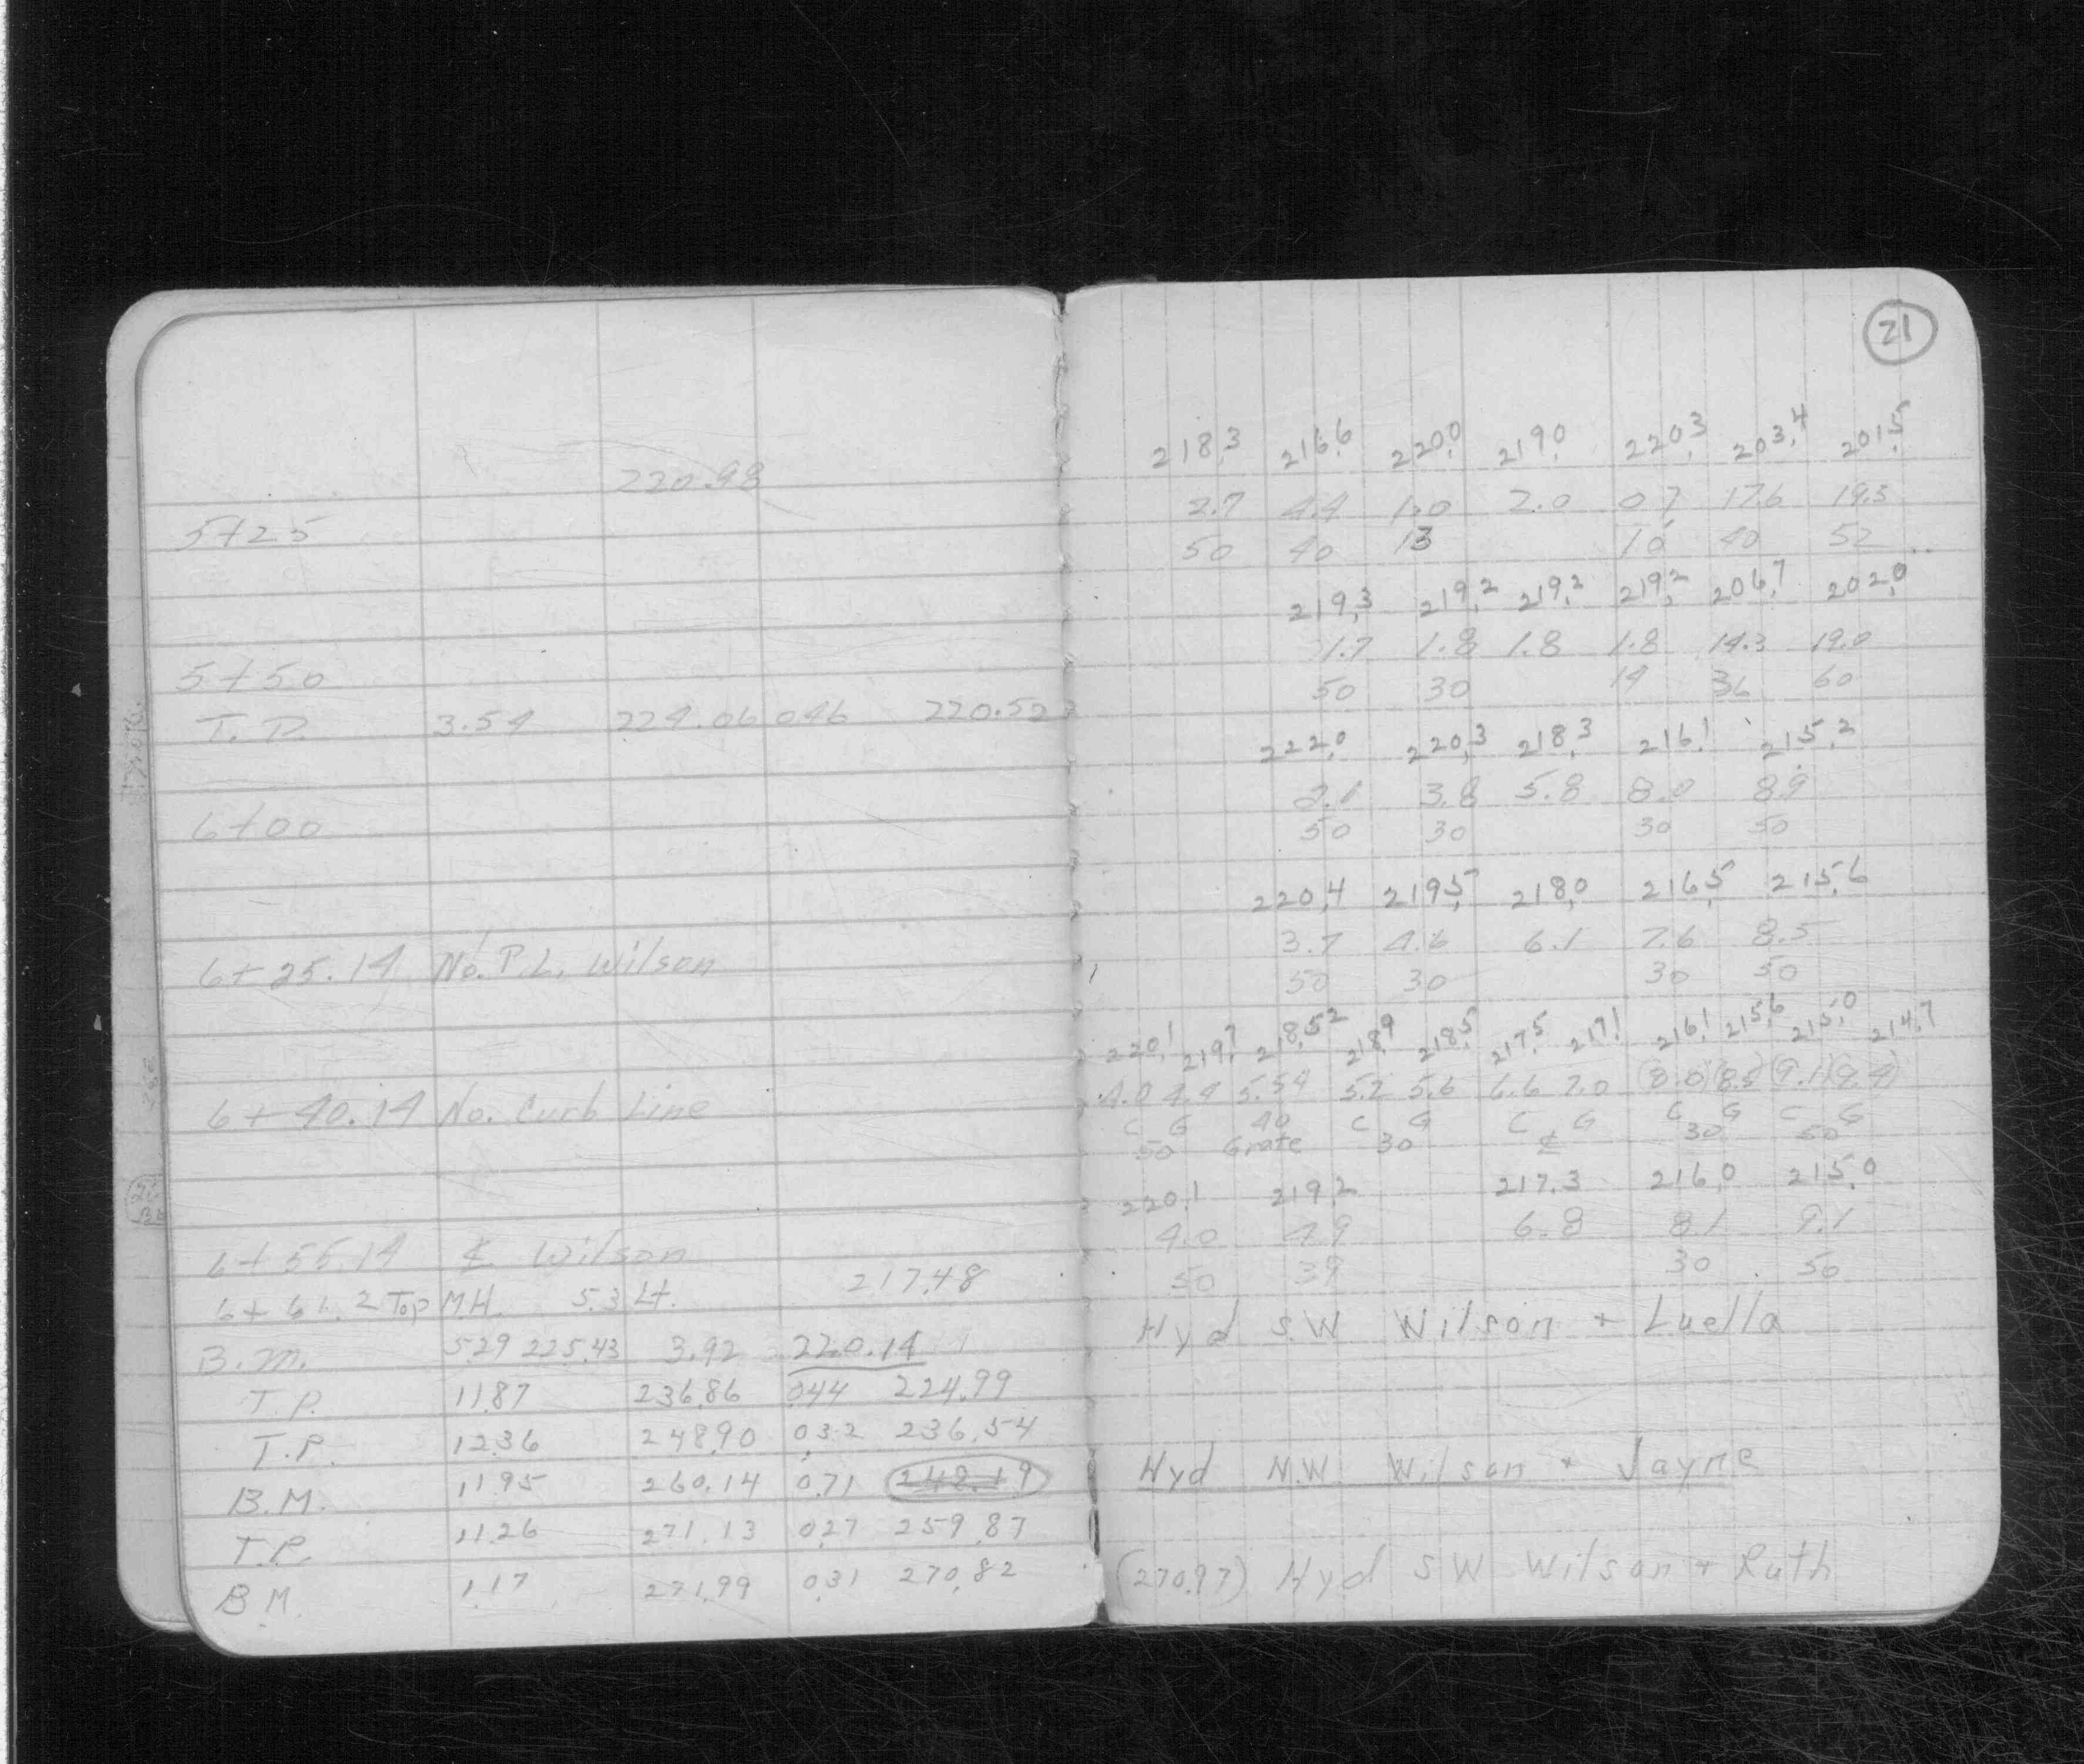 220.98
5+25
5+50
T.P. 3.54 224.06 0.46 220.52
6+00
6+25.14 No. P.L. Wilson
6+40.14 No. Curb Line
6+55.14 ℄ Wilson
217.48
6+61.2 Top M.H. 5.3 Lt.
B.M. 5.29 225.43 3.92 220.14
T.P. 11.87 236.86 0.44 224.99
T.P. 12.36 248.90 0.32 236.54
B.M. 11.95 260.14 0.71 248.19
T.P. 11.26 271.13 0.27 259.87
B.M. 1.17 271.99 0.31 270.82
21
218.3 216.6 220.0 219.0 220.3 203.4 201.5
2.7 4.4 1.0 2.0 0.7 17.6 19.5
50 40 13 16 40 52
219.3 219.2 219.2 219.2 206.7 202.0
1.7 1.8 1.8 1.8 14.3 19.0
50 30 14 36 60
222.0 220.3 218.3 216.1 215.2
2.1 3.8 5.8 8.0 8.9
50 30 30 50
220.4 219.5 218.0 216.5 215.6
3.7 4.6 6.1 7.6 8.5
50 30 30 50
220.1 219.7 218.52 218.9 218.5 217.5 217.1 216.1 215.6 215.0 214.7
4.0 4.4 5.54 5.2 5.6 6.6 7.0 (8.0) (8.5) (9.1) (9.4)
C G 40 C G C G C G C G
50 Grate 30 ℄ 30 50
220.1 219.2 217.3 216.0 215.0
4.0 4.9 6.8 8.1 9.1
50 39 30 50
Hyd S.W Wilson + Luella
Hyd N.W. Wilson + Jayne
(270.97) Hyd S W Wilson + Ruth